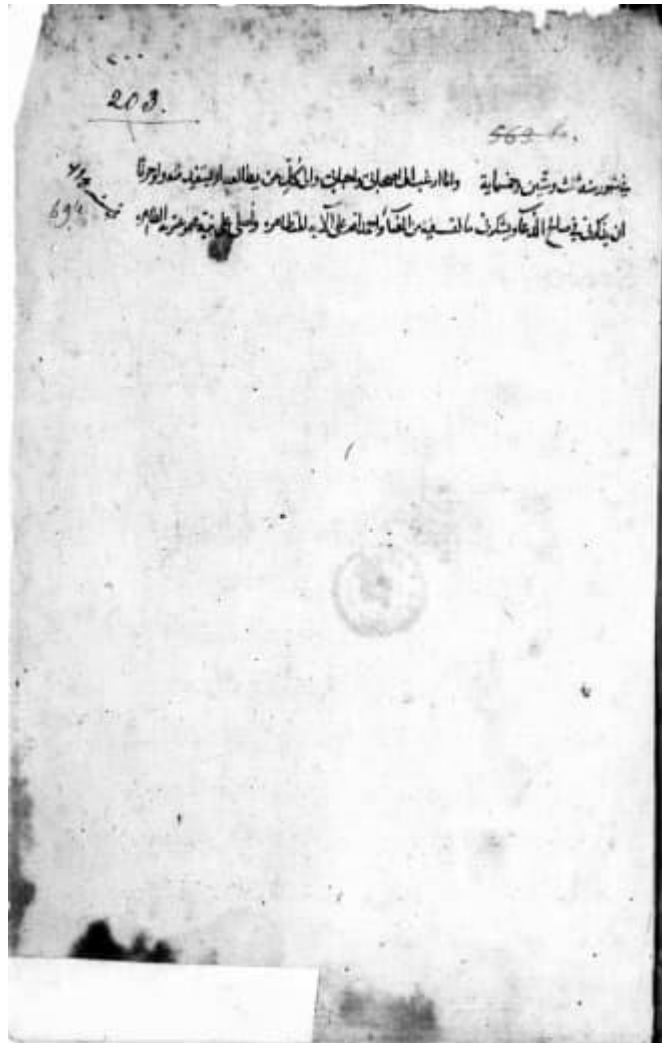 203.
569
في شهور سنة ثلث وستين وخمسماية وانا ارغب الى اصحابى واحبابى والى كل من يطالعه او يستفيد منه ولو حرفا
ان يذكرنى في صالح الدعاء ويشكرنى ما لقيت فيه من العناء والحمد لله على آلائه المتظاهرة واصلى على نبيه محمد وعترته الطاهرة
694